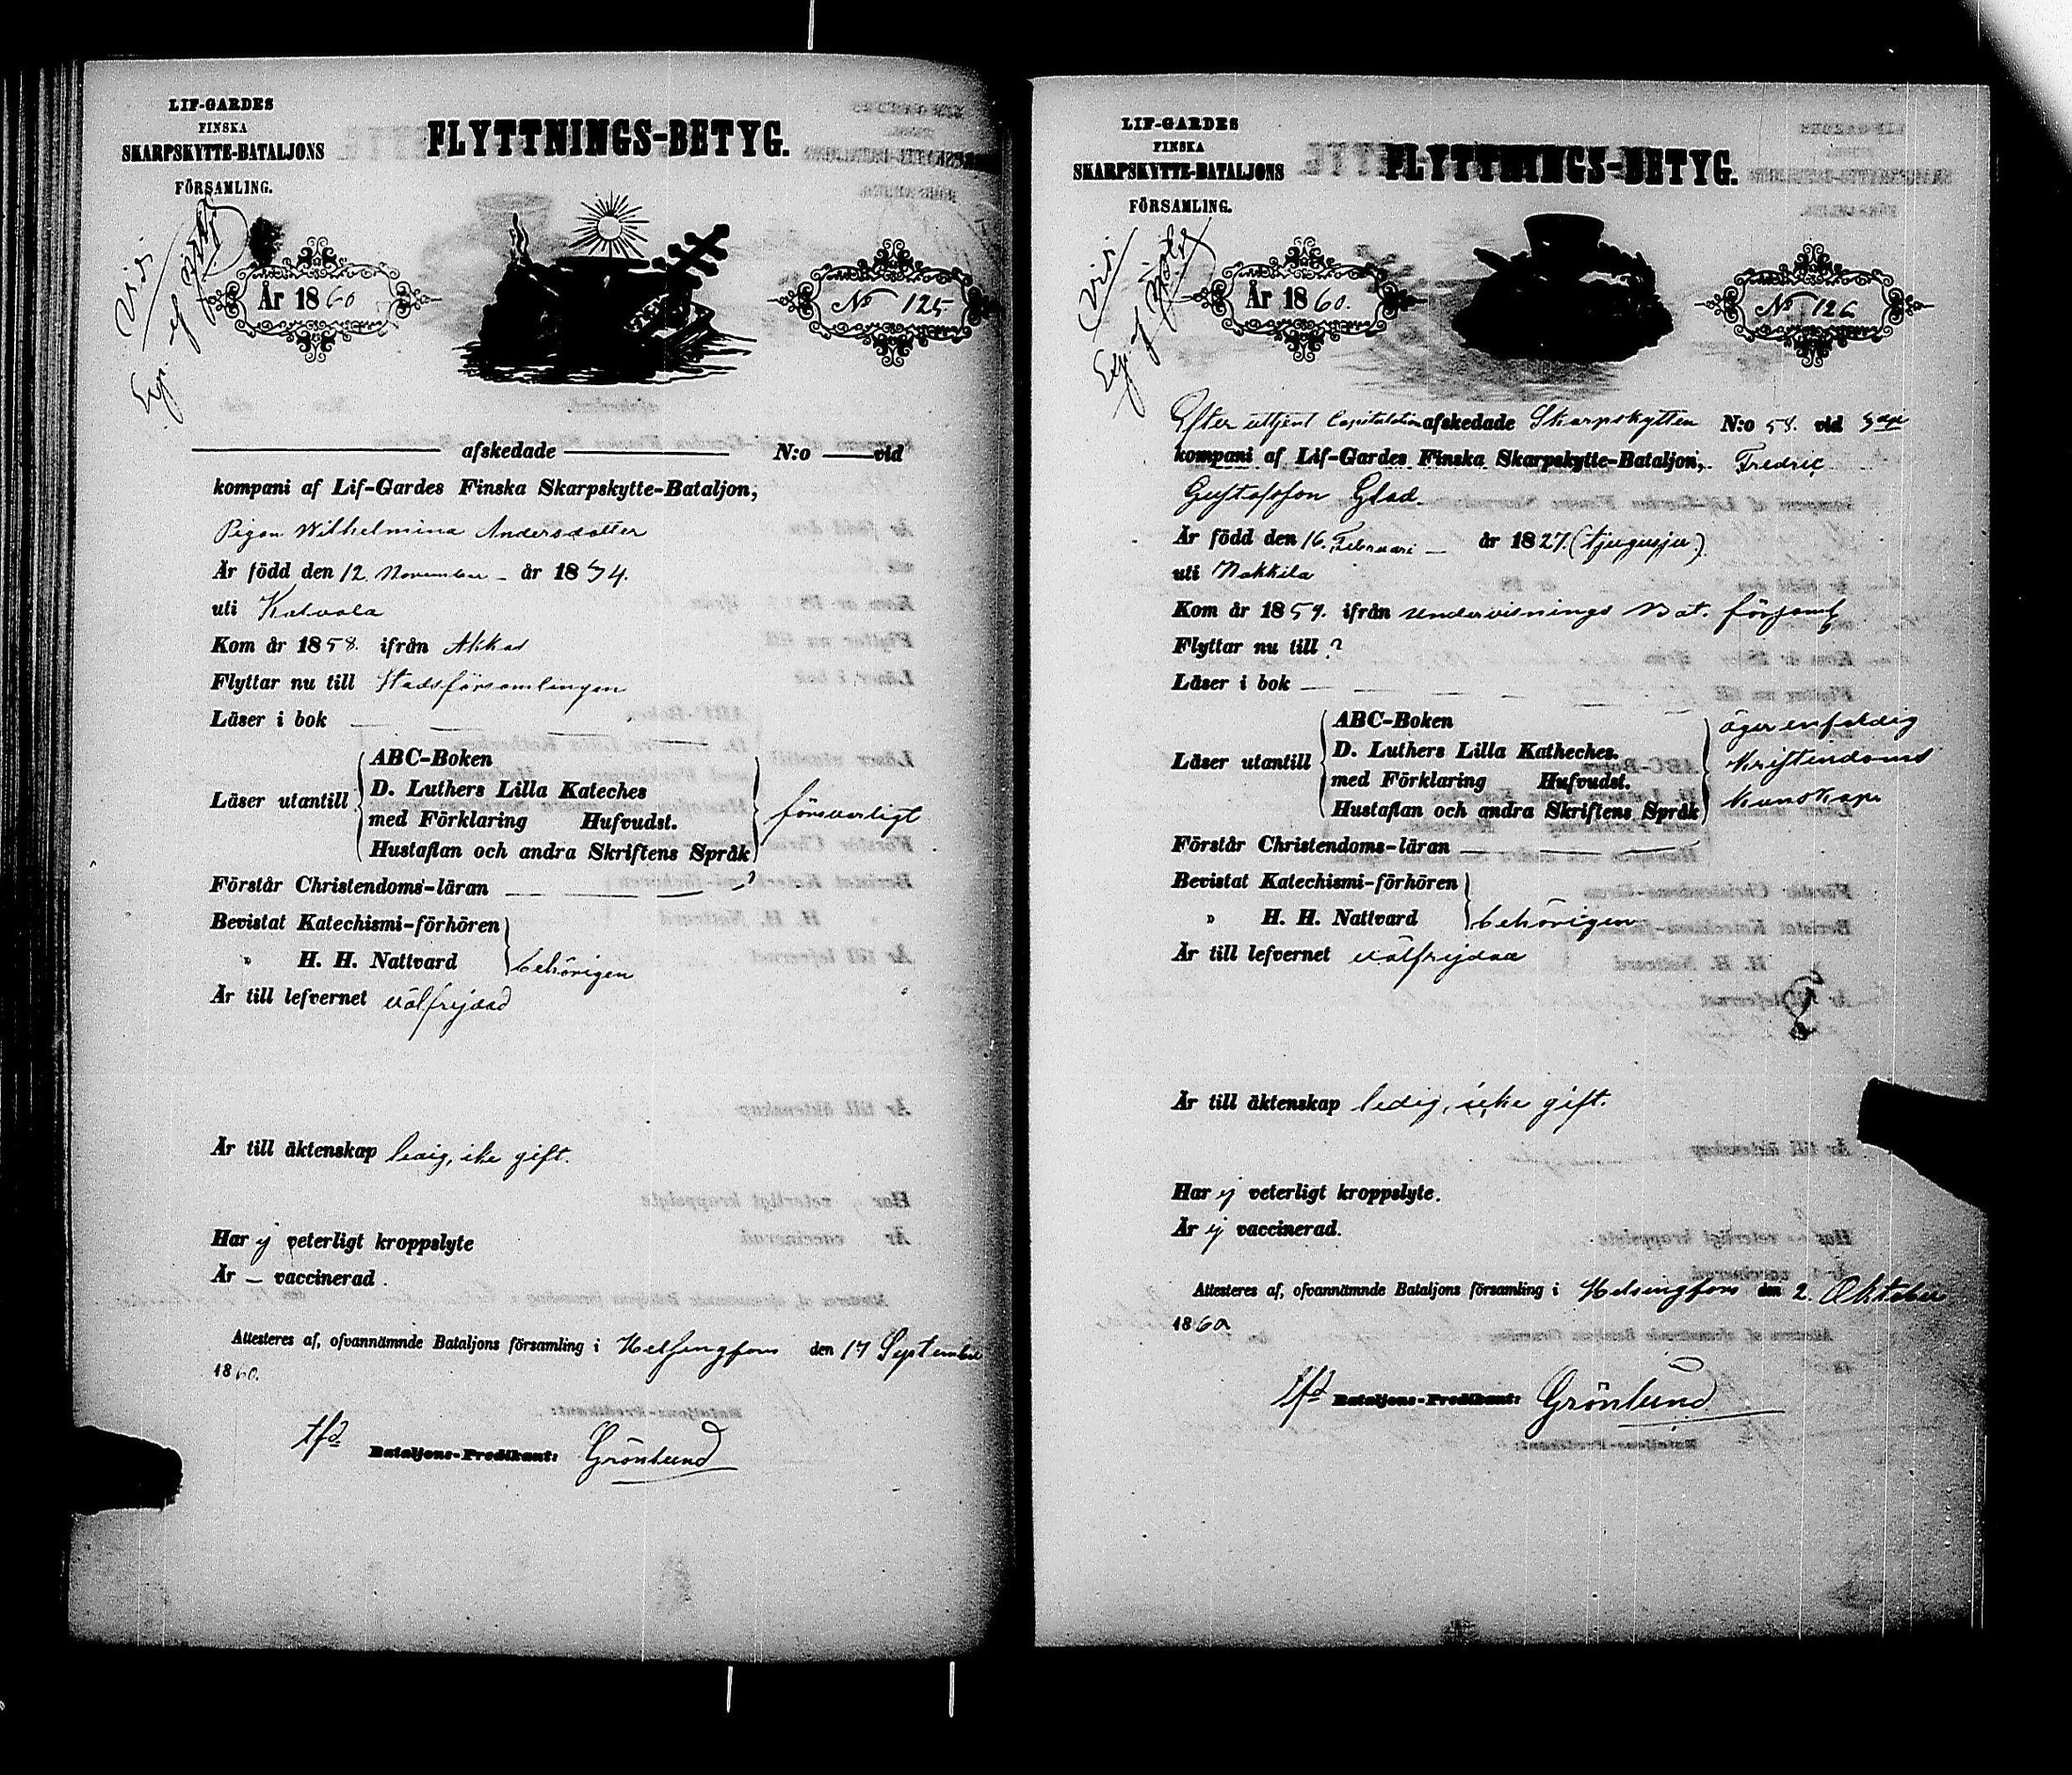 LIF-GARDES
FINSKA
SKARPSKYTTE-BATALJONS
FÖRSAMLING.
FLYTTNINGS-BETYG.
År 1860
No 125
afskedade N:o vid
kompani af Lif-Gardes Finska Skarpskytte-Bataljon,
Pigan Wilhelmina Andersdotter
Är född den 12 November år 1834.
uti Kalvola
Kom år 1858. ifrån Akkas
Flyttar nu till Stadsförsamlingen
Läser i bok
Läser utantill
ABC-Boken
D. Luthers Lilla Kateches
med Förklaring Hufvudst.
Hustaflan och andra Skriftens Språk
försvarligt
Förstår Christendoms-läran
Bevistat Katechismi-förhören
" H. H. Nattvard
behörigen
Är till lefvernet välfrejdad
Är till äktenskap ledig, ike gift.
Har ej veterligt kroppslyte
Är – vaccinerad.
Attesteres af, ofvannämnde Bataljons församling i Helsingfors den 17 September
1860.
tfd Bataljons-Predikant: Grönlund
LIF-GARDES
FINSKA
SKARPSKYTTE-BATALJONS
FÖRSAMLING.
FLYTTNINGS-BETYG.
År 1860.
No 126
Efter uttjent Capitulation afskedade Skarpskytten N:o 58. vid
kompani af Lif-Gardes Finska Skarpskytte-Bataljon, Fredric
Gustafsson Glad.
Är född den 16. Februari – år 1827. (tjugusju)
uti Nakkila
Kom år 1859. ifrån Undervisnings Bat. församl
Flyttar nu till ?
Läser i bok
Läser utantill
ABC-Boken
D. Luthers Lilla Katheches.
med Förklaring Hufvudst.
Hustaflan och andra Skriftens Språk
äger enfaldig
Kristendoms
kunskap
Förstår Christendoms-läran
Bevistat Katechismi-förhören
" H. H. Nattvard
behörigen
Är till lefvernet välfrejdad
Är till äktenskap ledig, icke gift.
Har ej veterligt kroppslyte.
Är ej vaccinerad.
Attesteres af, ofvannämnde Bataljons församling i Helsingfors den 2. Oktober
1860
tfd Bataljons-Predikant: Grönlund